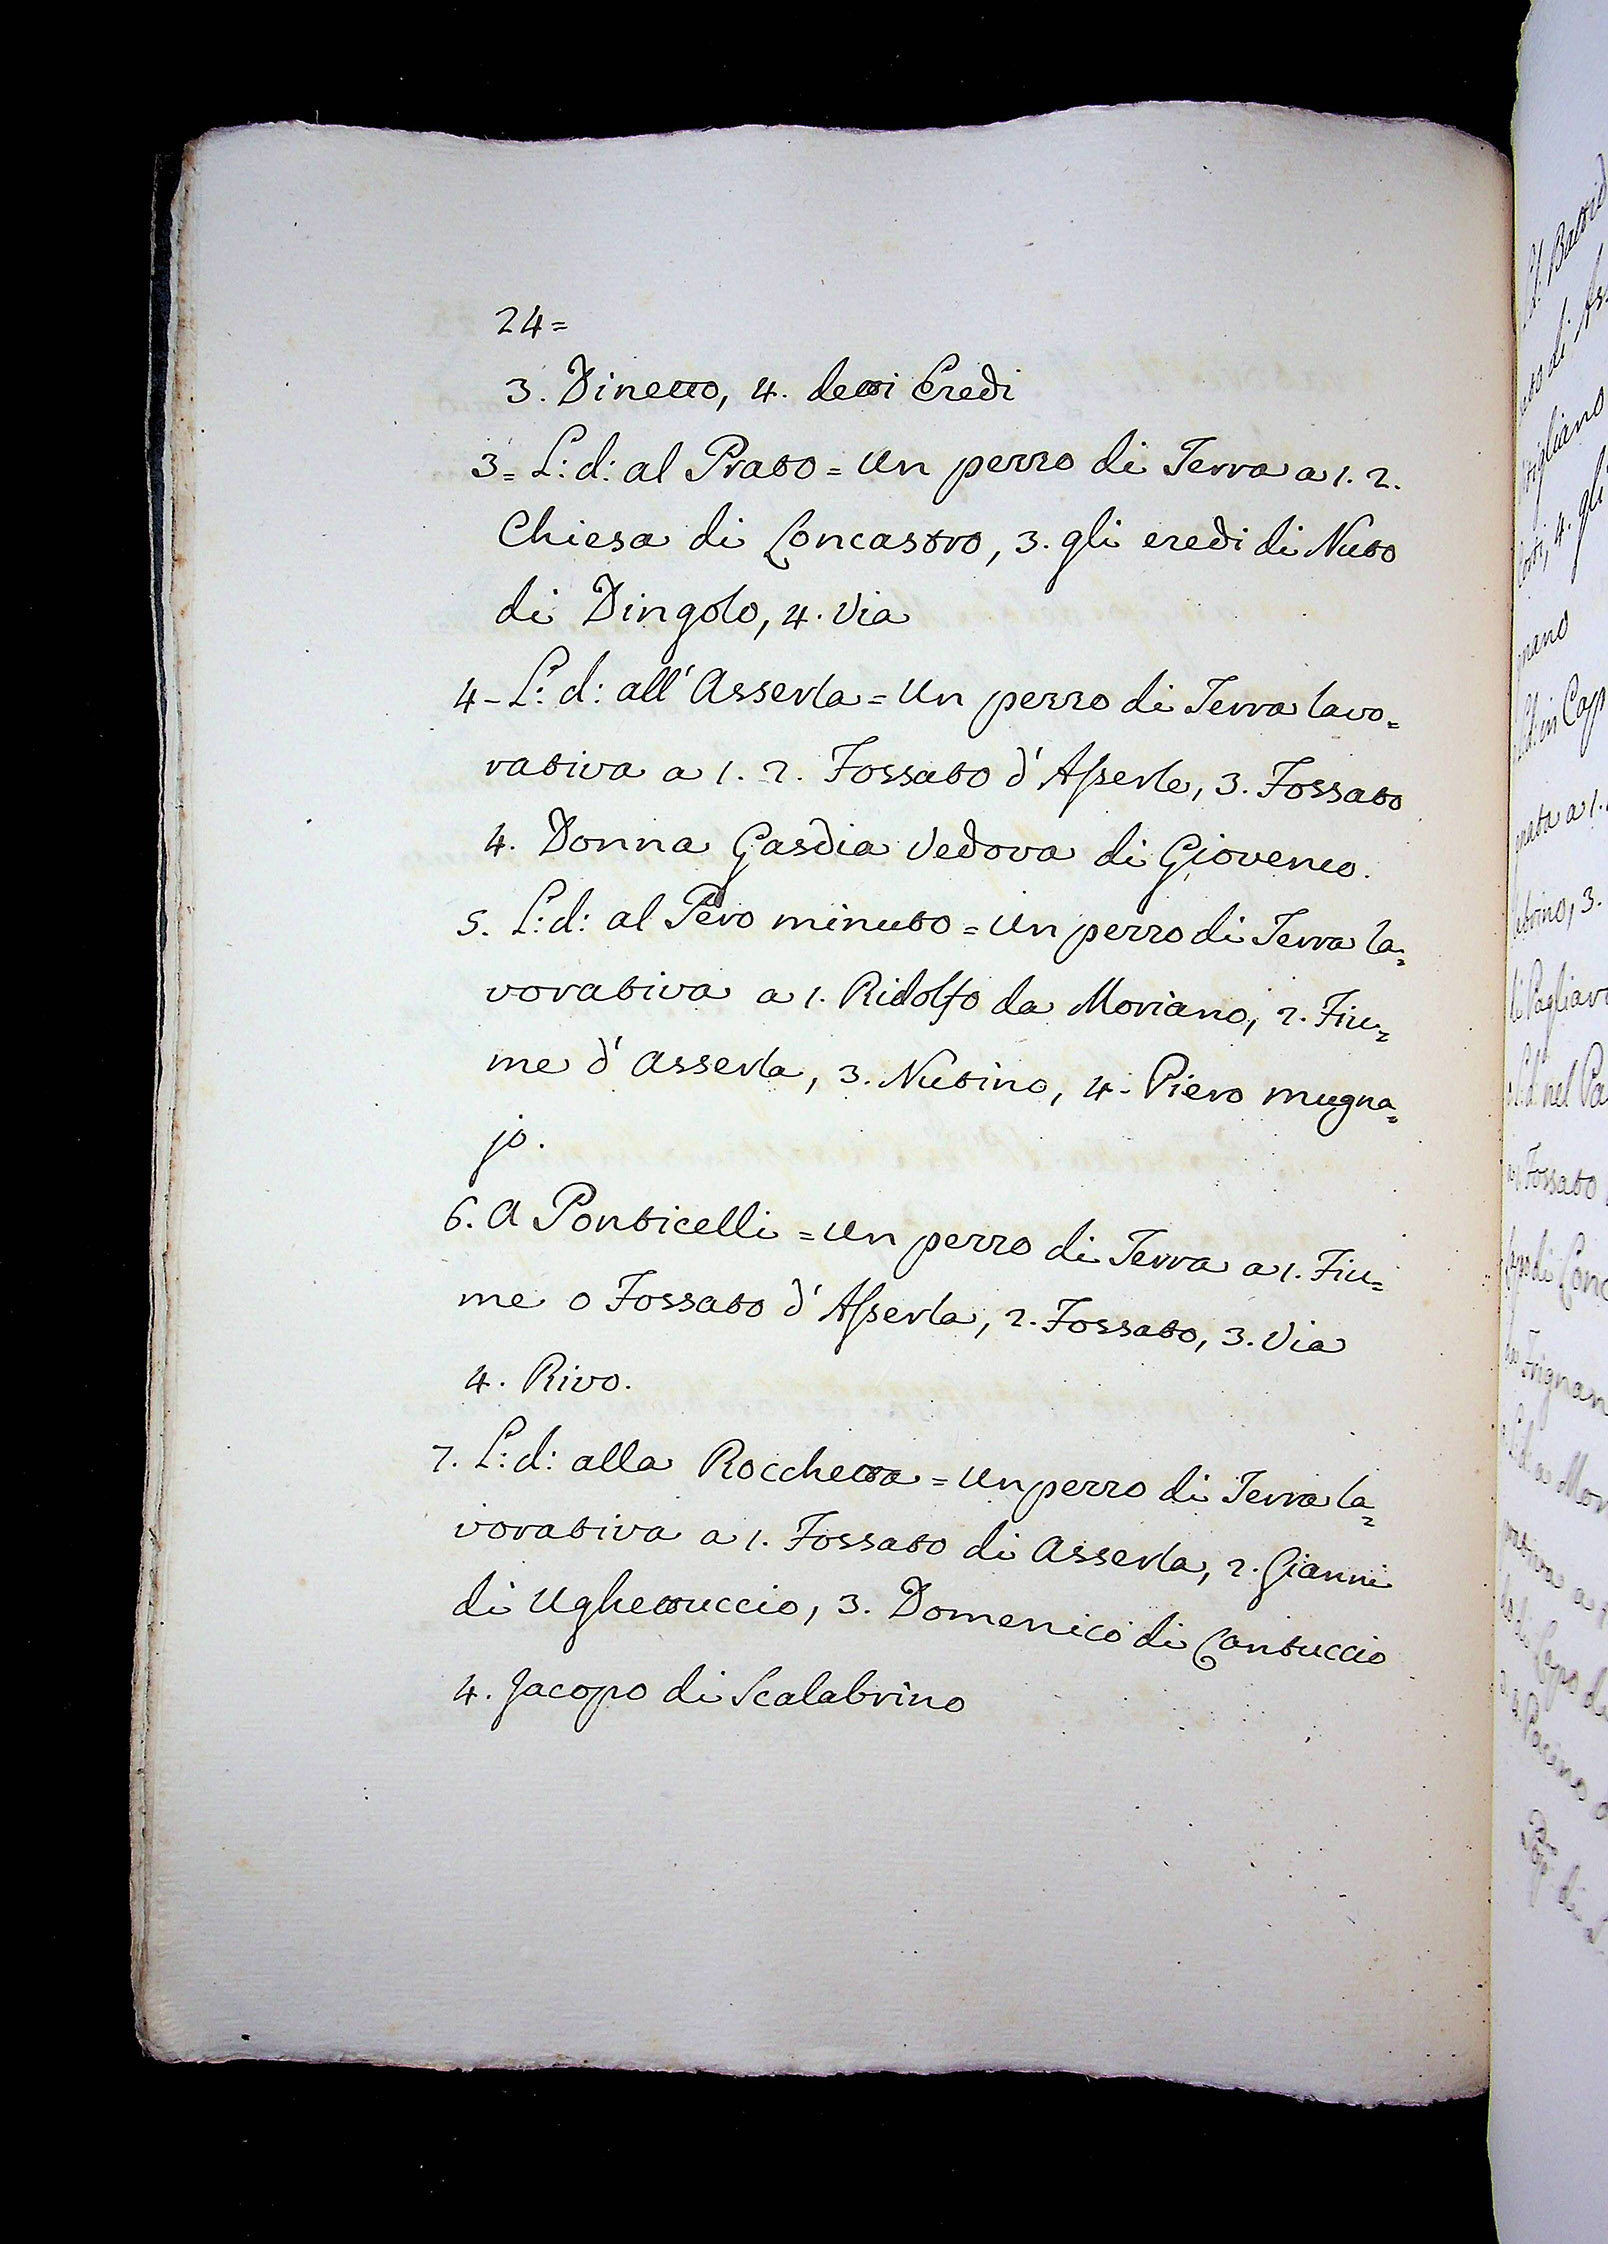 24=
3. Dinetto, 4. detti Eredi
3= L: d: al Prato = Un pezzo di Terra a 1. 2.
Chiesa di Loncastro, 3. gli eredi di Nuto
di Dingolo, 4. Via
4- L: d: all' Asserla = Un pezzo di Terra lavo=
rativa a 1. 2. Fossato d' Asserle, 3. Fossato
4. Donna Gasdia Vedova di Giovenco.
5. L: d: al Pero minuto = Un pezzo di Terra la=
vorativa a 1. Ridolfo da Moriano, 2. Fiu=
me d' Asserla, 3. Nutino, 4. Piero mugna=
jo.
6. A Ponticelli = Un pezzo di Terra a 1. Fiu=
me o Fossato d' Asserla, 2. Fossato, 3. Via
4. Rivo.
7. L: d: alla Rocchetta = Un pezzo di Terra la=
vorativa a 1. Fossato di Asserla, 2. Gianni
di Ughettuccio, 3. Domenico di Cantuccio
4. Jacopo di Scalabrino